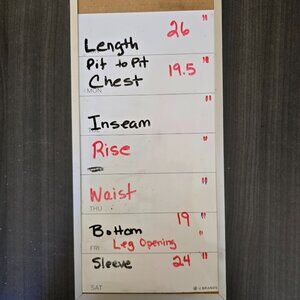 Length 26 "
Pit to Pit
Chest 19.5 "
MON
Inseam "
Rise "
Waist "
THU
Bottom 19 "
FRI Leg Opening "
Sleeve 24 "
SAT
U BRANDS